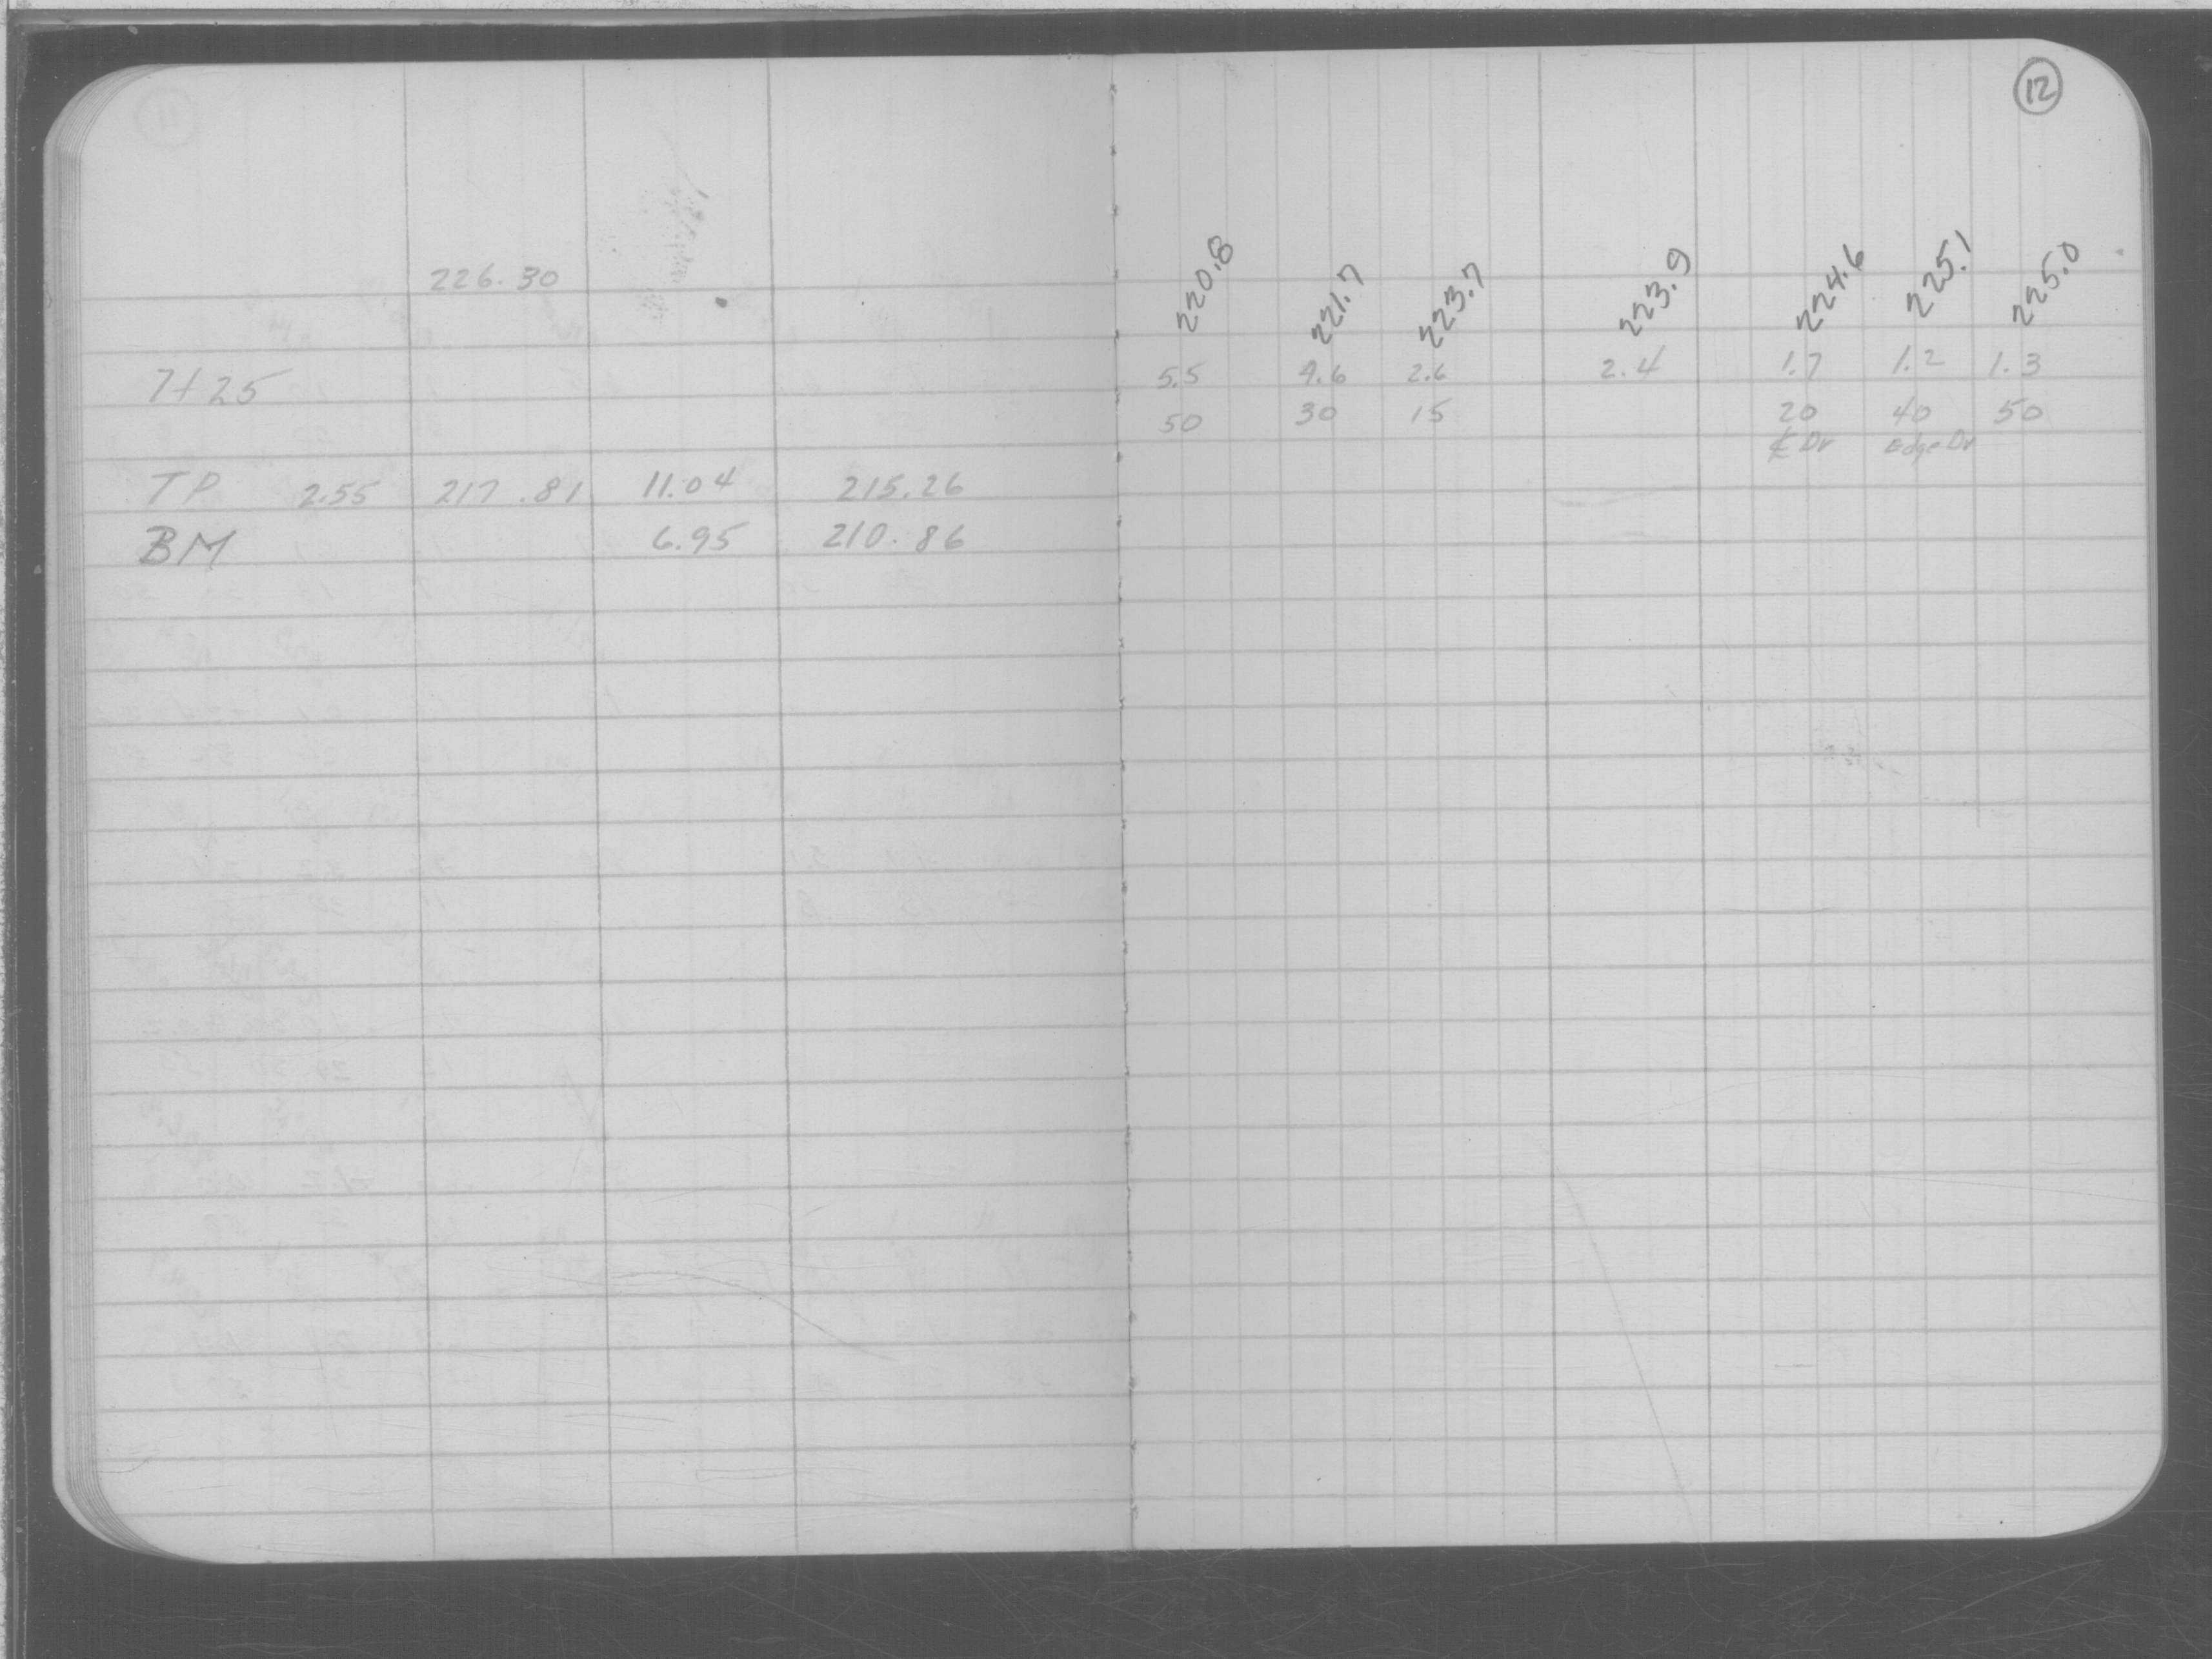 12
226.30
220.8 221.7 223.7 223.9 224.6 225.1 225.0
7+25 5.5 4.6 2.6 2.4 1.7 1.2 1.3
50 30 15 20 40 50
℄ Dr Edge Dr
TP 2.55 217.81 11.04 215.26
BM 6.95 210.86